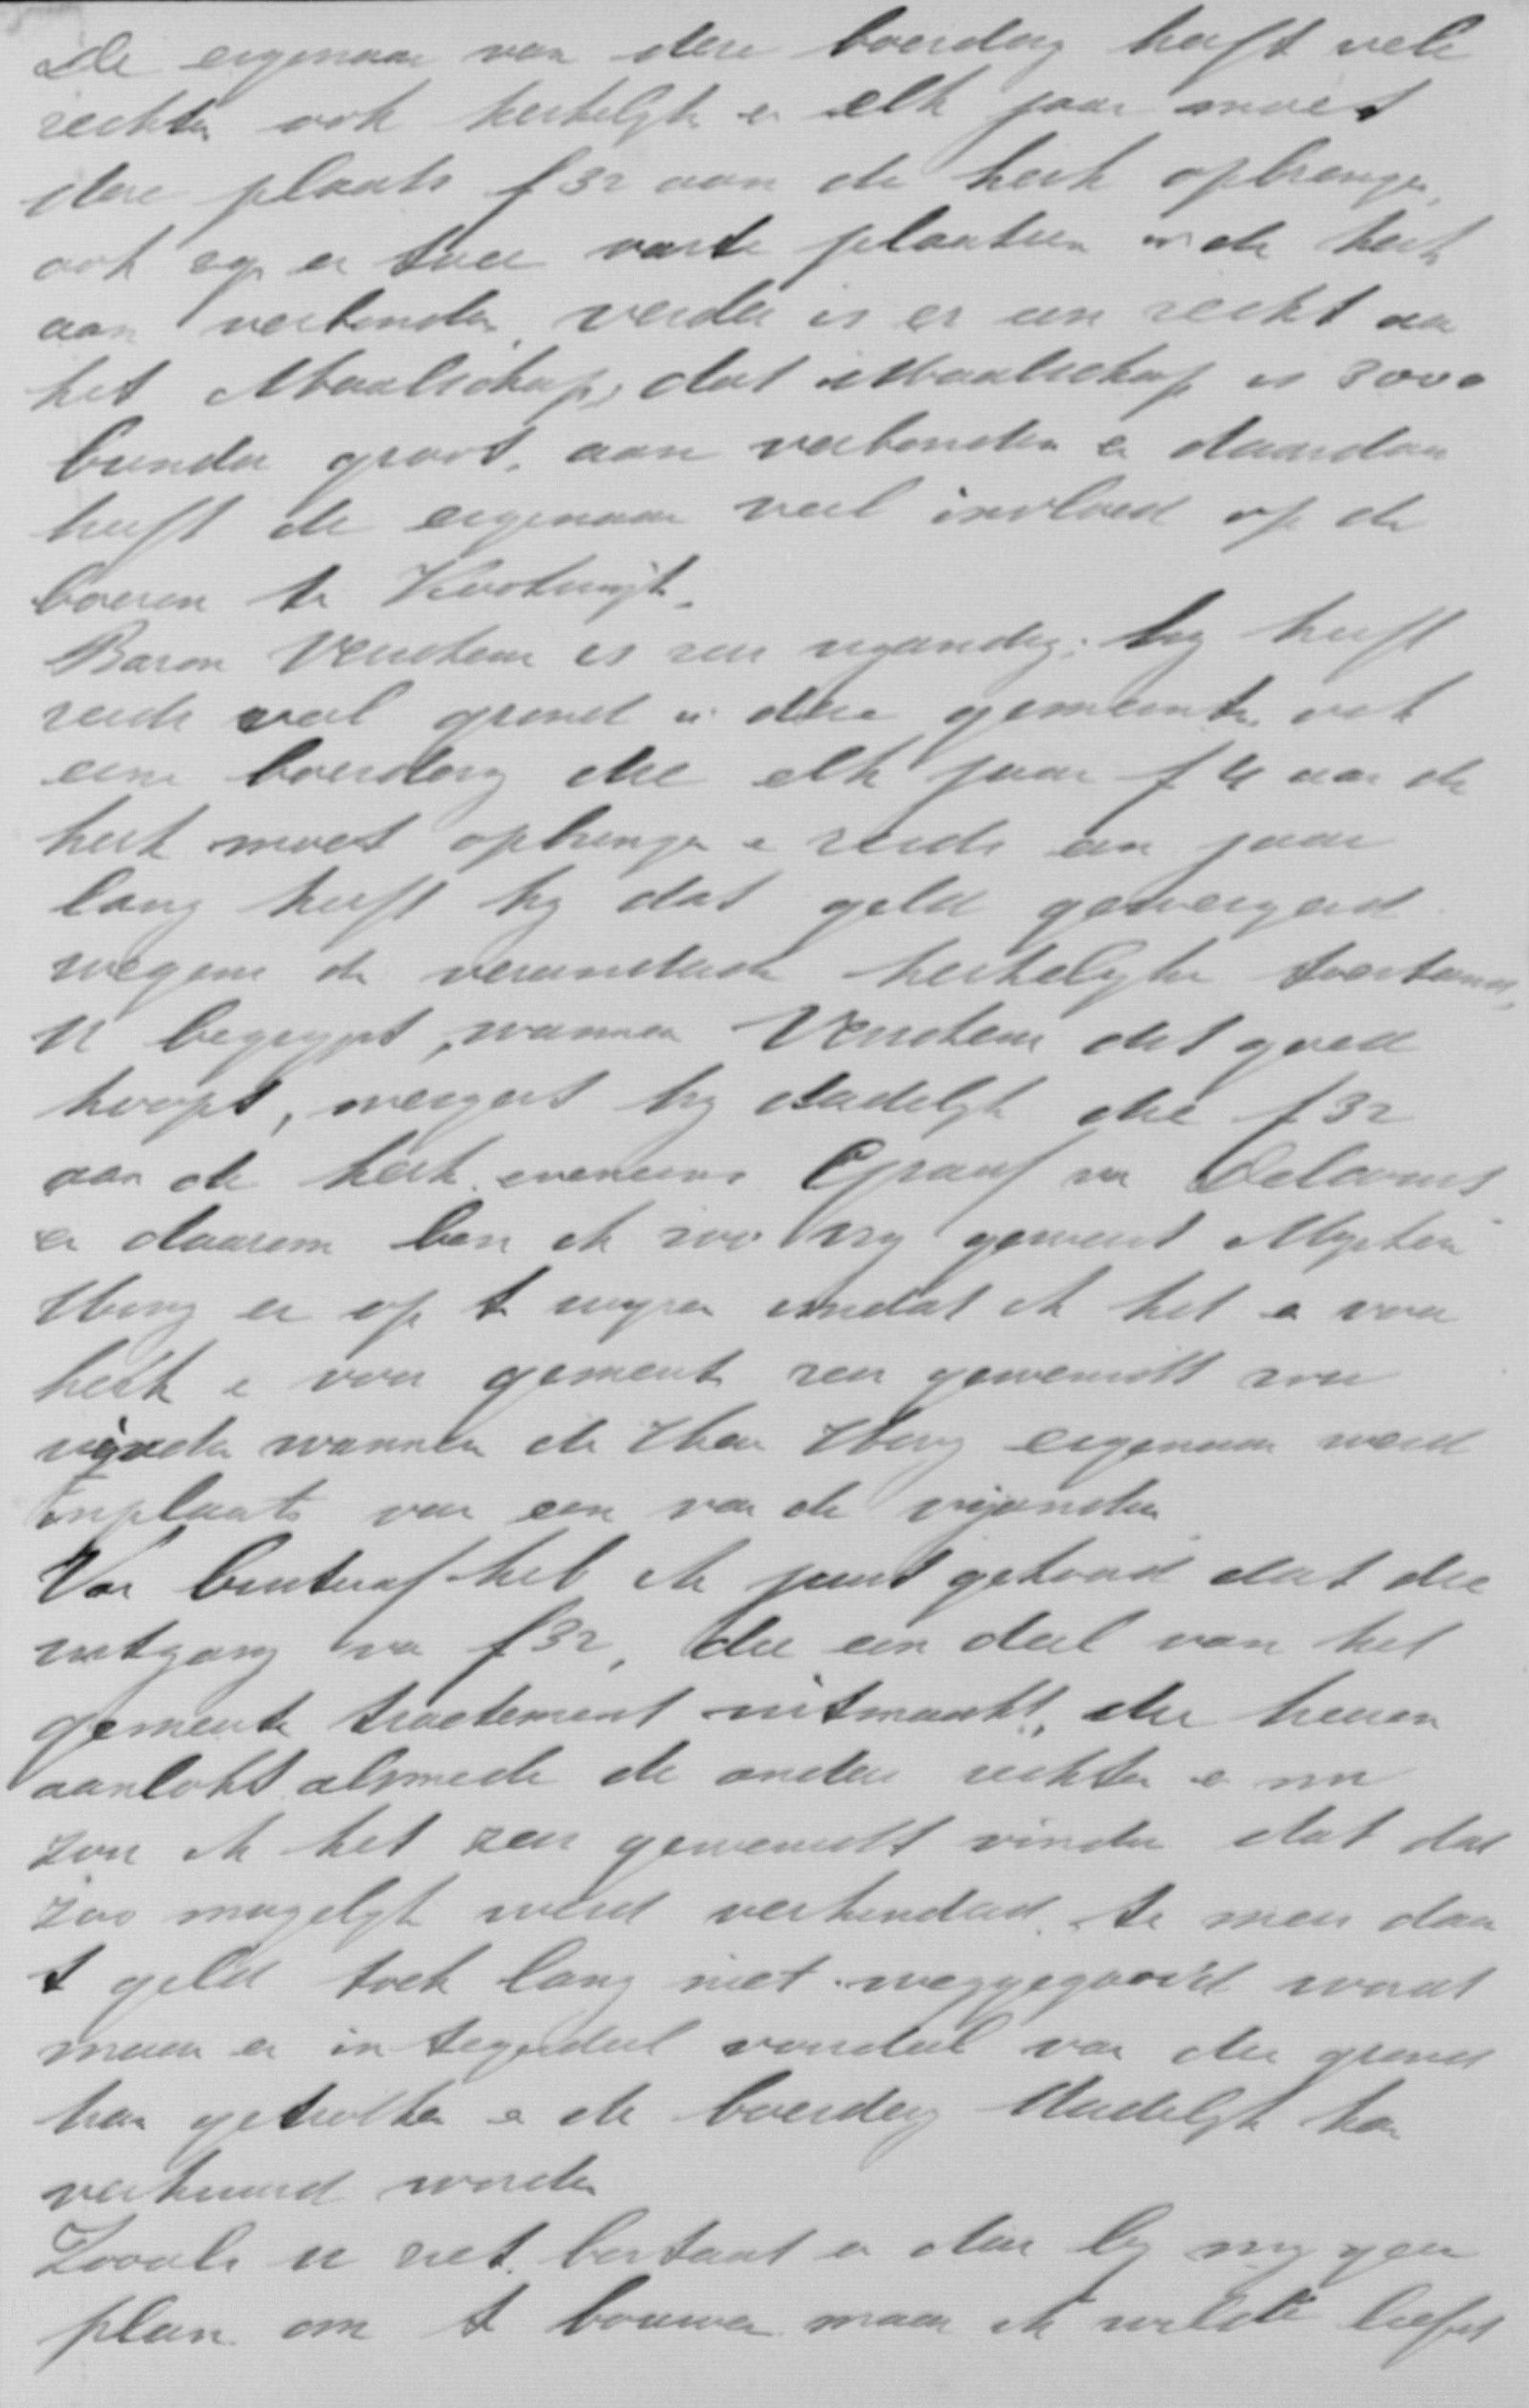 De eigenaar van deze boerderij heeft vele
rechten ook kerkelijke en elk jaar moet
deze plaats f 32 aan de kerk opbrengen,
ook zijn er twee vaste plaatsen in de kerk
aan verbonden, verder is er een recht aan
het Maalschap, dat Maalschap is 3000
bunder groot, aan verbonden en daardoor
heeft de eigenaar veel invloed op de
boeren te Kootwijk.
Baron is een vijandig; hij heeft
reeds veel grond in deze gemeente, ook
eene boerderij die elk jaar f aan de
kerk moet opbrengen en reeds een jaar
lang heeft hij dat geld geweigerd
wegens de veranderde kerkelijke toestand,
U begrijpt, wanneer dit goed
koopt, weigert hij dadelijk die f 32
aan de kerk, eveneens Graaf van
en daarom ben ik zoo vrij geweest
er op te wijzen omdat ik het en voor
kerk en voor gemeente zeer gewenscht zou
vinden wanneer de Heer eigenaar werd
inplaats van een van de vijanden
Van heb ik juist gehoord dat die
uitgang van f 32, die een deel van het
gemeente tractement uitmaakt, die heeren
aanlokt alsmede de andere rechten en nu
zou ik het zeer gewenscht vinden dat dat
zoo mogelijk werd verhinderd, te meer daar
t geld toch lang niet weggegooid wordt
maar er in tegendeel voordeel van die grond
kan getrokken en de boerderij dadelijk kan
verhuurd worden
Zooals u ziet, bestaat er dus bij mij geen
plan om te bouwen maar ik wilde liefst